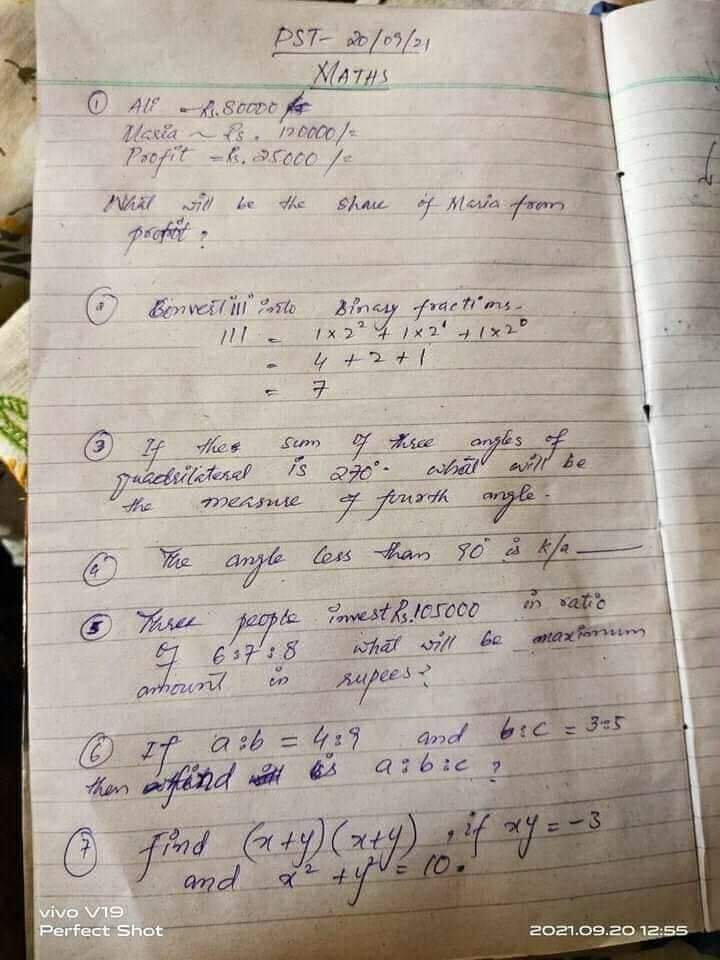 PST- 20/09/21
MATHS
① Ali - Rs.80000/=
Maria ~ Rs. 120000/=
Profit = Rs. 25000/=
What will be the share of Maria from
profit?
② Convert 111 into Binary fractions.
111 = 1×2² + 1×2¹ + 1×2⁰
= 4 + 2 + 1
= 7
③ If the sum of three angles of
quadrilateral is 270°. what will be
the measure of fourth angle.
④ The angle less than 90° is k/a ——
⑤ Three people invest Rs.105000 in ratio
of 6:7:8 what will be maximum
amount in rupees?
⑥ If a:b = 4:9 and b:c = 3:5
then find is a:b:c?
⑦ find (x+y)(x+y), if xy = -3
and x² + y² = 10.
vivo V19
Perfect Shot
2021.09.20 12:55